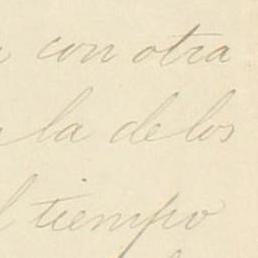 con otra
la de los
tiempo